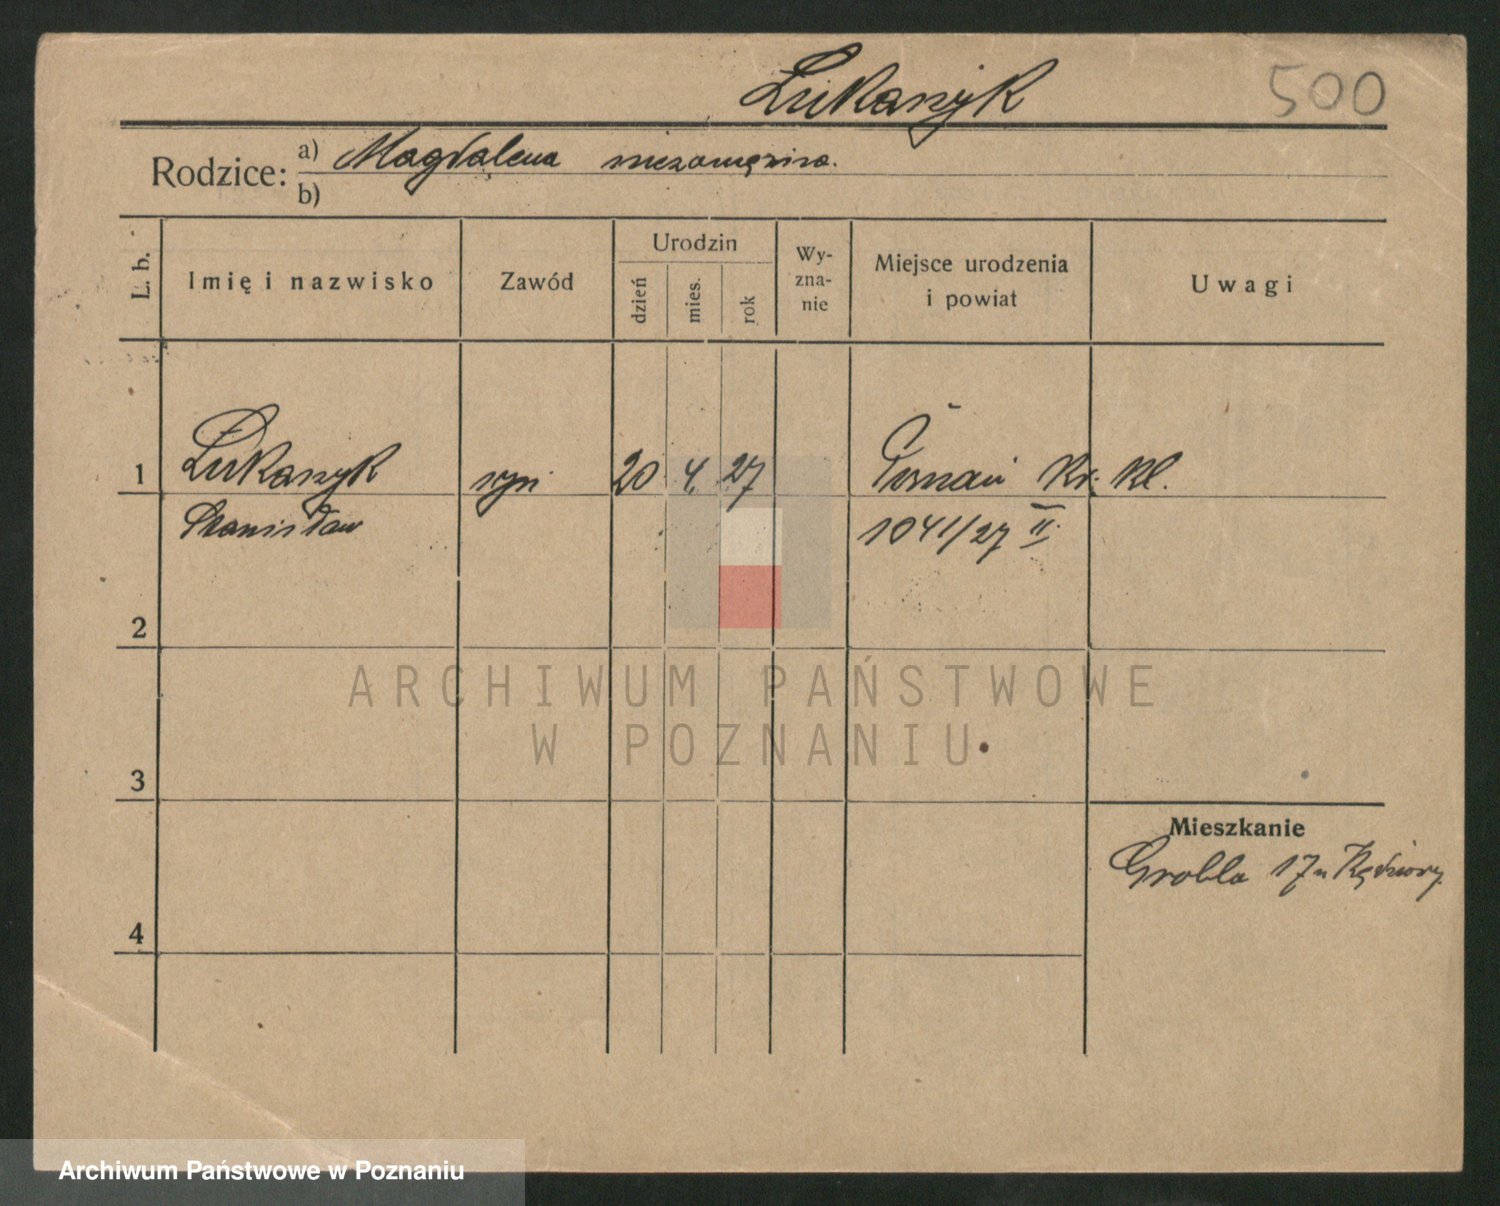 Łukaszyk 500
Rodzice: a) Magdalena niezamężna.
b)
L. b. Imię i nazwisko Zawód Urodzin dzień mies. rok Wy-zna-nie Miejsce urodzenia i powiat Uwagi
1 Łukaszyk syn 20 4. 27 Poznań Kr. Kl.
Stanisław 1041/27 II.
2
ARCHIWUM PAŃSTWOWE
W POZNANIU
3
Mieszkanie
Grobla 17 u
4
Archiwum Państwowe w Poznaniu